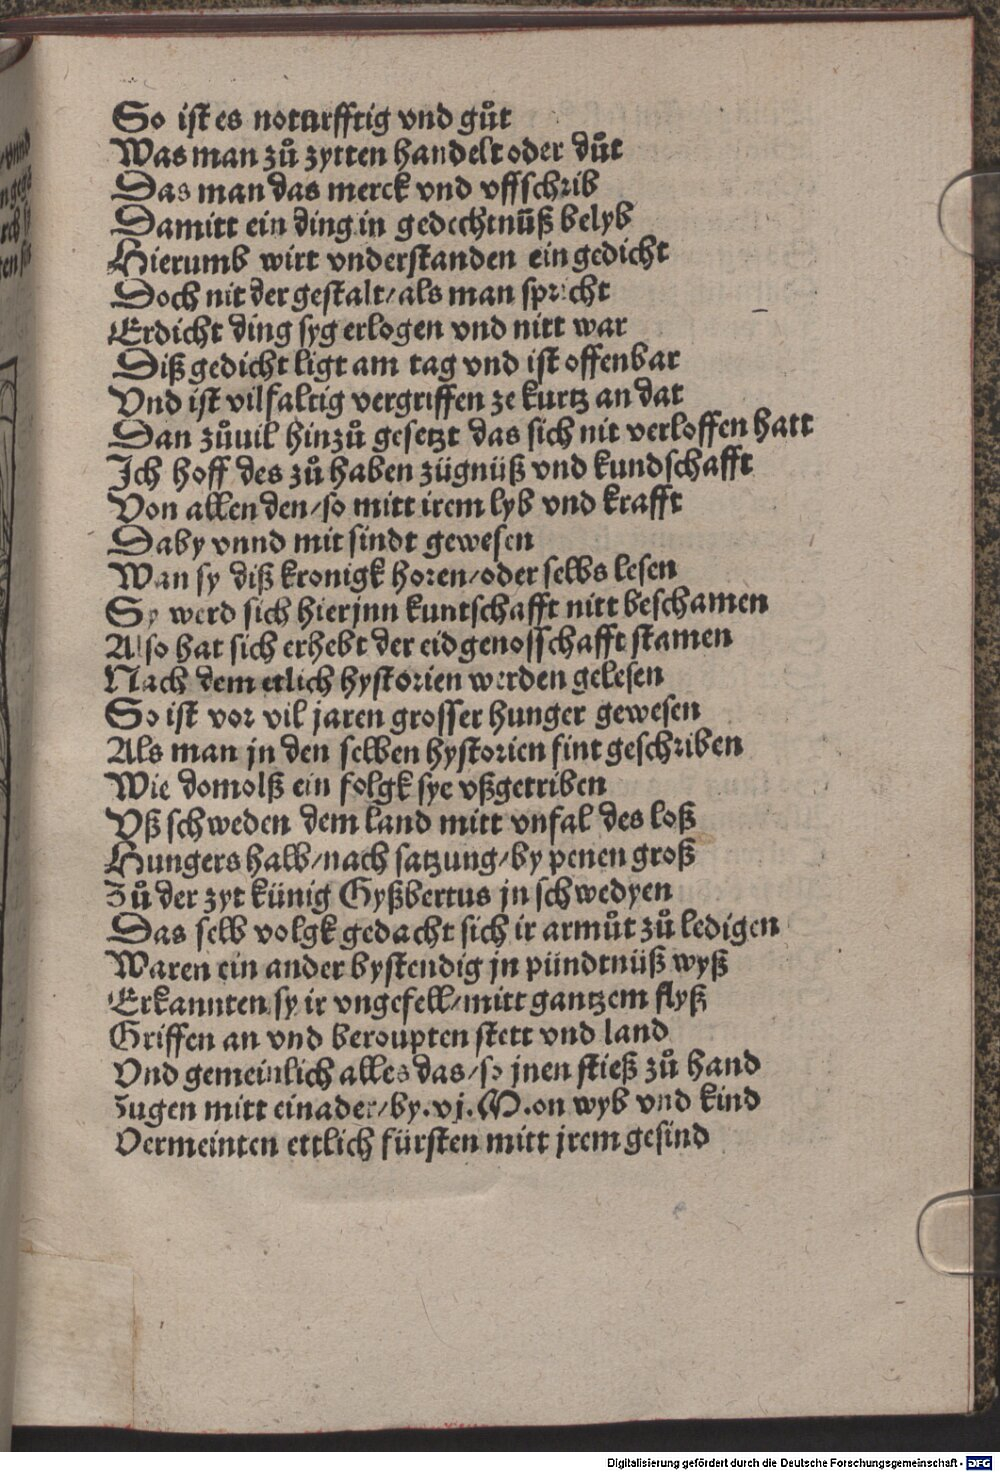 So ist es noturfftig vnd gůt
Was man zů zytten handelt oder důt
Das man das merck vnd vffschrib
Damitt ein ding in gedechtnüß belyb
Hierumb wirt vnderstanden ein gedicht
Doch nit der gestalt/als man spricht
Erdicht ding syg erlogen vnd nitt war
Diß gedicht ligt am tag vnd ist offenbar
Vnd ist vilfaltig vergriffen ze kurtz an dat
Dan zůuil hinzů gesetzt das sich nit verloffen hatt
Ich hoff des zů haben zügnüß vnd kundschafft
Von allen den/so mitt irem lyb vnd krafft
Daby vnnd mit sindt gewesen
Wan sy diß kronigk horen/oder selbs lesen
Sy werd sich hierjnn kuntschafft nitt beschamen
Also hat sich erhebt der eidgenosschafft stamen
Nach dem etlich hystorien werden gelesen
So ist vor vil jaren grosser hunger gewesen
Als man jn den selben hystorien fint geschriben
Wie domolß ein folgk sye vßgetriben
Vß schweden dem land mitt vnfal des loß
Hungers halb/nach satzung/by penen groß
Zů der zyt künig Gyßbertus jn schwedyen
Das selb volgk gedacht sich ir armůt zů ledigen
Waren ein ander bystendig jn pündtnüß wyß
Erkannten sy ir vngefell/mitt gantzem flyß
Griffen an vnd beroupten stett vnd land
Vnd gemeinlich alles das/so jnen stieß zů hand
Zugen mitt einader/by.vj.M.on wyb vnd kind
Vermeinten ettlich fürsten mitt jrem gesind
Digitalisierung gefördert durch die Deutsche Forschungsgemeinschaft - DFG